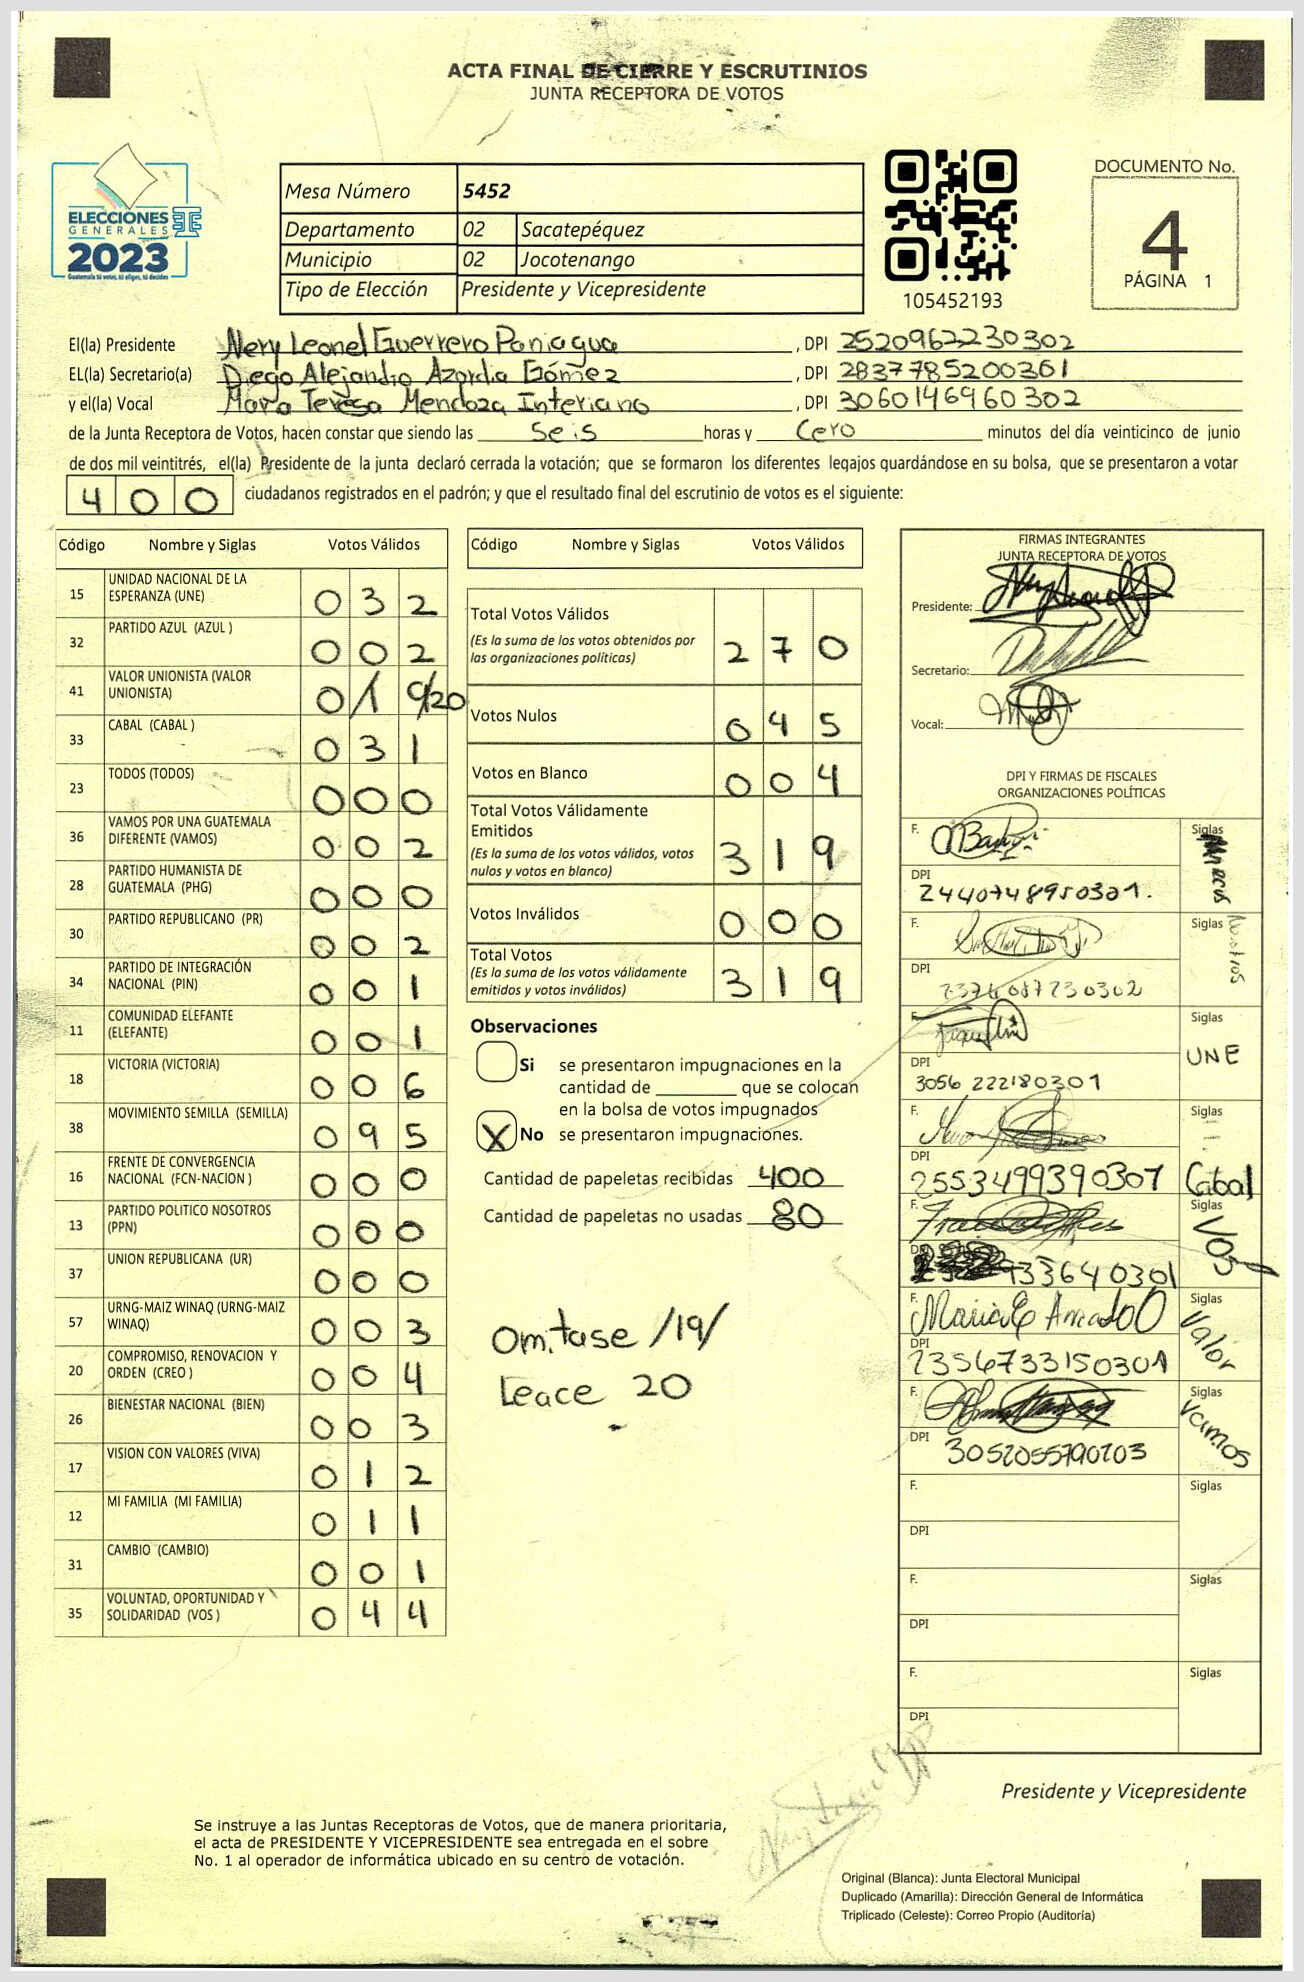 ACTA FINAL DE CIERRE Y ESCRUTINIOS
JUNTA RECEPTORA DE VOTOS
ELECCIONES
GENERALES
2023
Guatemala tú votas, tú eliges, tú decides
Mesa Número 5452
Departamento 02 Sacatepéquez
Municipio 02 Jocotenango
Tipo de Elección Presidente y Vicepresidente
105452193
DOCUMENTO No.
4
PÁGINA 1
El(la) Presidente Nery Leonel Guerrero Paniagua, DPI 2520962230302
EL(la) Secretario(a) Diego Alejandro Azordia Gómez, DPI 2837785200301
y el(la) Vocal Mara Teresa Mendoza Interiano, DPI 3060146960302
de la Junta Receptora de Votos, hacen constar que siendo las seis horas y cero minutos del día veinticinco de junio
de dos mil veintitrés, el(la) Presidente de la junta declaró cerrada la votación; que se formaron los diferentes legajos guardándose en su bolsa, que se presentaron a votar
400 ciudadanos registrados en el padrón; y que el resultado final del escrutinio de votos es el siguiente:
Código Nombre y Siglas Votos Válidos
15 UNIDAD NACIONAL DE LA ESPERANZA (UNE) 032
32 PARTIDO AZUL (AZUL ) 002
41 VALOR UNIONISTA (VALOR UNIONISTA) 019/20
33 CABAL (CABAL ) 031
23 TODOS (TODOS) 000
36 VAMOS POR UNA GUATEMALA DIFERENTE (VAMOS) 002
28 PARTIDO HUMANISTA DE GUATEMALA (PHG) 000
30 PARTIDO REPUBLICANO (PR) 002
34 PARTIDO DE INTEGRACIÓN NACIONAL (PIN) 001
11 COMUNIDAD ELEFANTE (ELEFANTE) 001
18 VICTORIA (VICTORIA) 006
38 MOVIMIENTO SEMILLA (SEMILLA) 095
16 FRENTE DE CONVERGENCIA NACIONAL (FCN-NACION ) 000
13 PARTIDO POLITICO NOSOTROS (PPN) 000
37 UNION REPUBLICANA (UR) 000
57 URNG-MAIZ WINAQ (URNG-MAIZ WINAQ) 003
20 COMPROMISO, RENOVACION Y ORDEN (CREO ) 004
26 BIENESTAR NACIONAL (BIEN) 003
17 VISION CON VALORES (VIVA) 012
12 MI FAMILIA (MI FAMILIA) 011
31 CAMBIO (CAMBIO) 001
35 VOLUNTAD, OPORTUNIDAD Y SOLIDARIDAD (VOS ) 044
Código Nombre y Siglas Votos Válidos
Total Votos Válidos 270
(Es la suma de los votos obtenidos por
las organizaciones políticas)
Votos Nulos 045
Votos en Blanco 004
Total Votos Válidamente
Emitidos 319
(Es la suma de los votos válidos, votos
nulos y votos en blanco)
Votos Inválidos 000
Total Votos 319
(Es la suma de los votos válidamente
emitidos y votos inválidos)
Observaciones
Si se presentaron impugnaciones en la
cantidad de ________ que se colocan
en la bolsa de votos impugnados
X No se presentaron impugnaciones.
Cantidad de papeletas recibidas 400
Cantidad de papeletas no usadas 80
Omitase /19/
Leace 20
FIRMAS INTEGRANTES
JUNTA RECEPTORA DE VOTOS
Presidente:
Secretario:
Vocal:
DPI Y FIRMAS DE FISCALES
ORGANIZACIONES POLÍTICAS
F. Siglas
DPI 2440748950301.
F. Siglas Nosotros
DPI
F. Siglas UNE
DPI 3056 222180301
F. Siglas Cabal
DPI 2553499390307
F. Siglas VOS
DPI 933640301
F. Siglas Valor
DPI 2356733150301
F. Siglas Vamos
DPI 3052055790203
F. Siglas
DPI
F. Siglas
DPI
F. Siglas
DPI
Presidente y Vicepresidente
Se instruye a las Juntas Receptoras de Votos, que de manera prioritaria,
el acta de PRESIDENTE Y VICEPRESIDENTE sea entregada en el sobre
No. 1 al operador de informática ubicado en su centro de votación.
Original (Blanca): Junta Electoral Municipal
Duplicado (Amarilla): Dirección General de Informática
Triplicado (Celeste): Correo Propio (Auditoría)